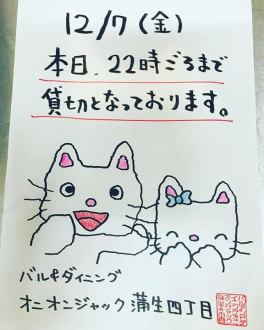 12/7(金)
本日、22時ごろまで
貸切となっております。
バル&ダイニング
オニオンジャック 蒲生四丁目